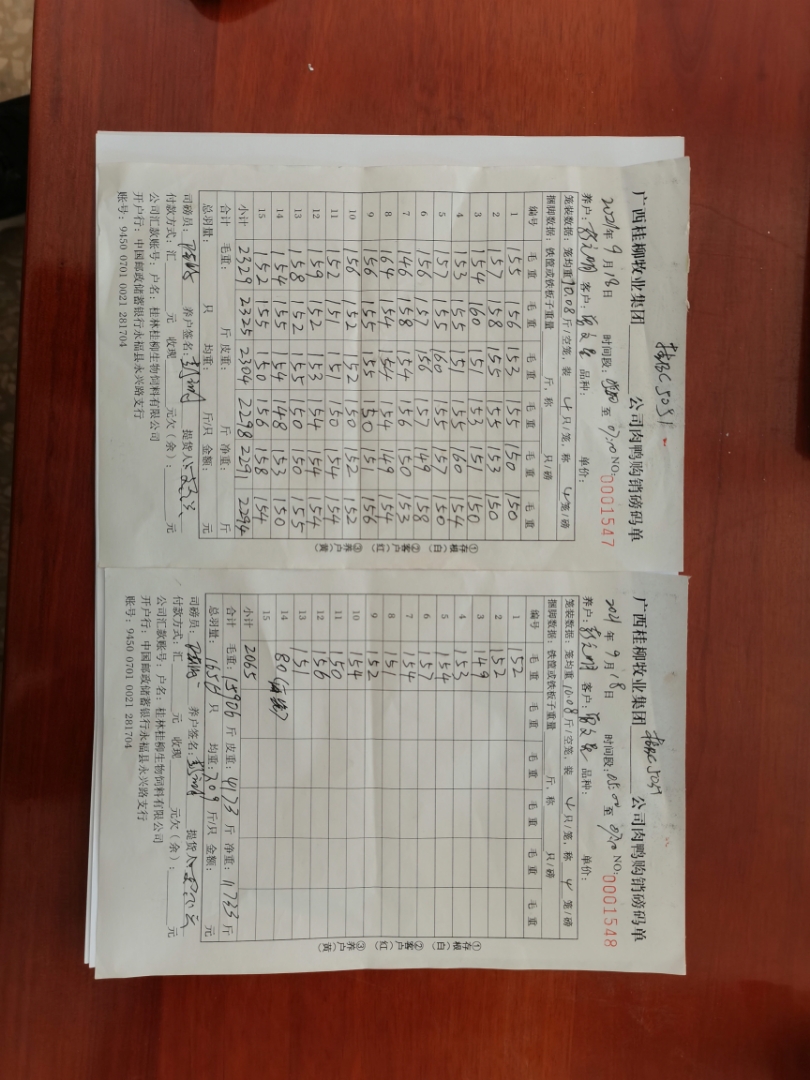 广西桂柳牧业集团 公司肉鸭购销磅码单
2021年 9 月 18 日 时间段: 至 NO:0001547
养户: 客户: 品种: 单价:
笼装数据:笼均重 10.08 斤/空笼,装 4 只/笼,称 4 笼/磅
捆脚数据:铁筐或铁板子重量 斤,称 只/磅
编号 毛重 毛重 毛重 毛重 毛重 毛重
1 155 156 153 155 150 150
2 157 158 155 155 153 150
3 154 160 151 153 151 150
4 153 155 151 155 160 154
5 157 155 160 155 157 150
6 156 157 156 157 149 158
7 146 158 154 156 150 153
8 164 154 154 154 149 154
9 156 155 155 150 151 156
10 156 152 152 150 152 152
11 152 151 151 150 154 154
12 159 152 153 154 154 154
13 158 152 155 150 150 155
14 154 155 154 148 153 150
15 152 155 150 156 158 154
小计 2329 2325 2304 2298 2291 2294
合计 毛重: 斤 皮重: 斤 净重: 斤
总羽量: 只 均重: 斤/只 金额: 元
司磅员: 养户签名: 提货人:
付款方式:汇 元 收现 元欠(余): 元
公司汇款账号:户名:桂林桂柳生物饲料有限公司
开户行:中国邮政储蓄银行永福县永兴路支行
账号:9450 0701 0021 281704
①存根(白) ②客户(红) ③养户(黄)
广西桂柳牧业集团 公司肉鸭购销磅码单
2021 年 9 月 18 日 时间段: 至 NO:0001548
养户: 客户: 品种: 单价:
笼装数据:笼均重 10.08 斤/空笼,装 4 只/笼,称 4 笼/磅
捆脚数据:铁筐或铁板子重量 斤,称 只/磅
编号 毛重 毛重 毛重 毛重 毛重 毛重
1 152
2 152
3 149
4 153
5 154
6 157
7 154
8 151
9 152
10 154
11 150
12 156
13 151
14 80
15
小计 2065
合计 毛重: 15906 斤 皮重: 4173 斤 净重: 11733 斤
总羽量: 只 均重: 7.09 斤/只 金额: 元
司磅员: 养户签名: 提货人:
付款方式:汇 元 收现 元欠(余): 元
公司汇款账号:户名:桂林桂柳生物饲料有限公司
开户行:中国邮政储蓄银行永福县永兴路支行
账号:9450 0701 0021 281704
①存根(白) ②客户(红) ③养户(黄)